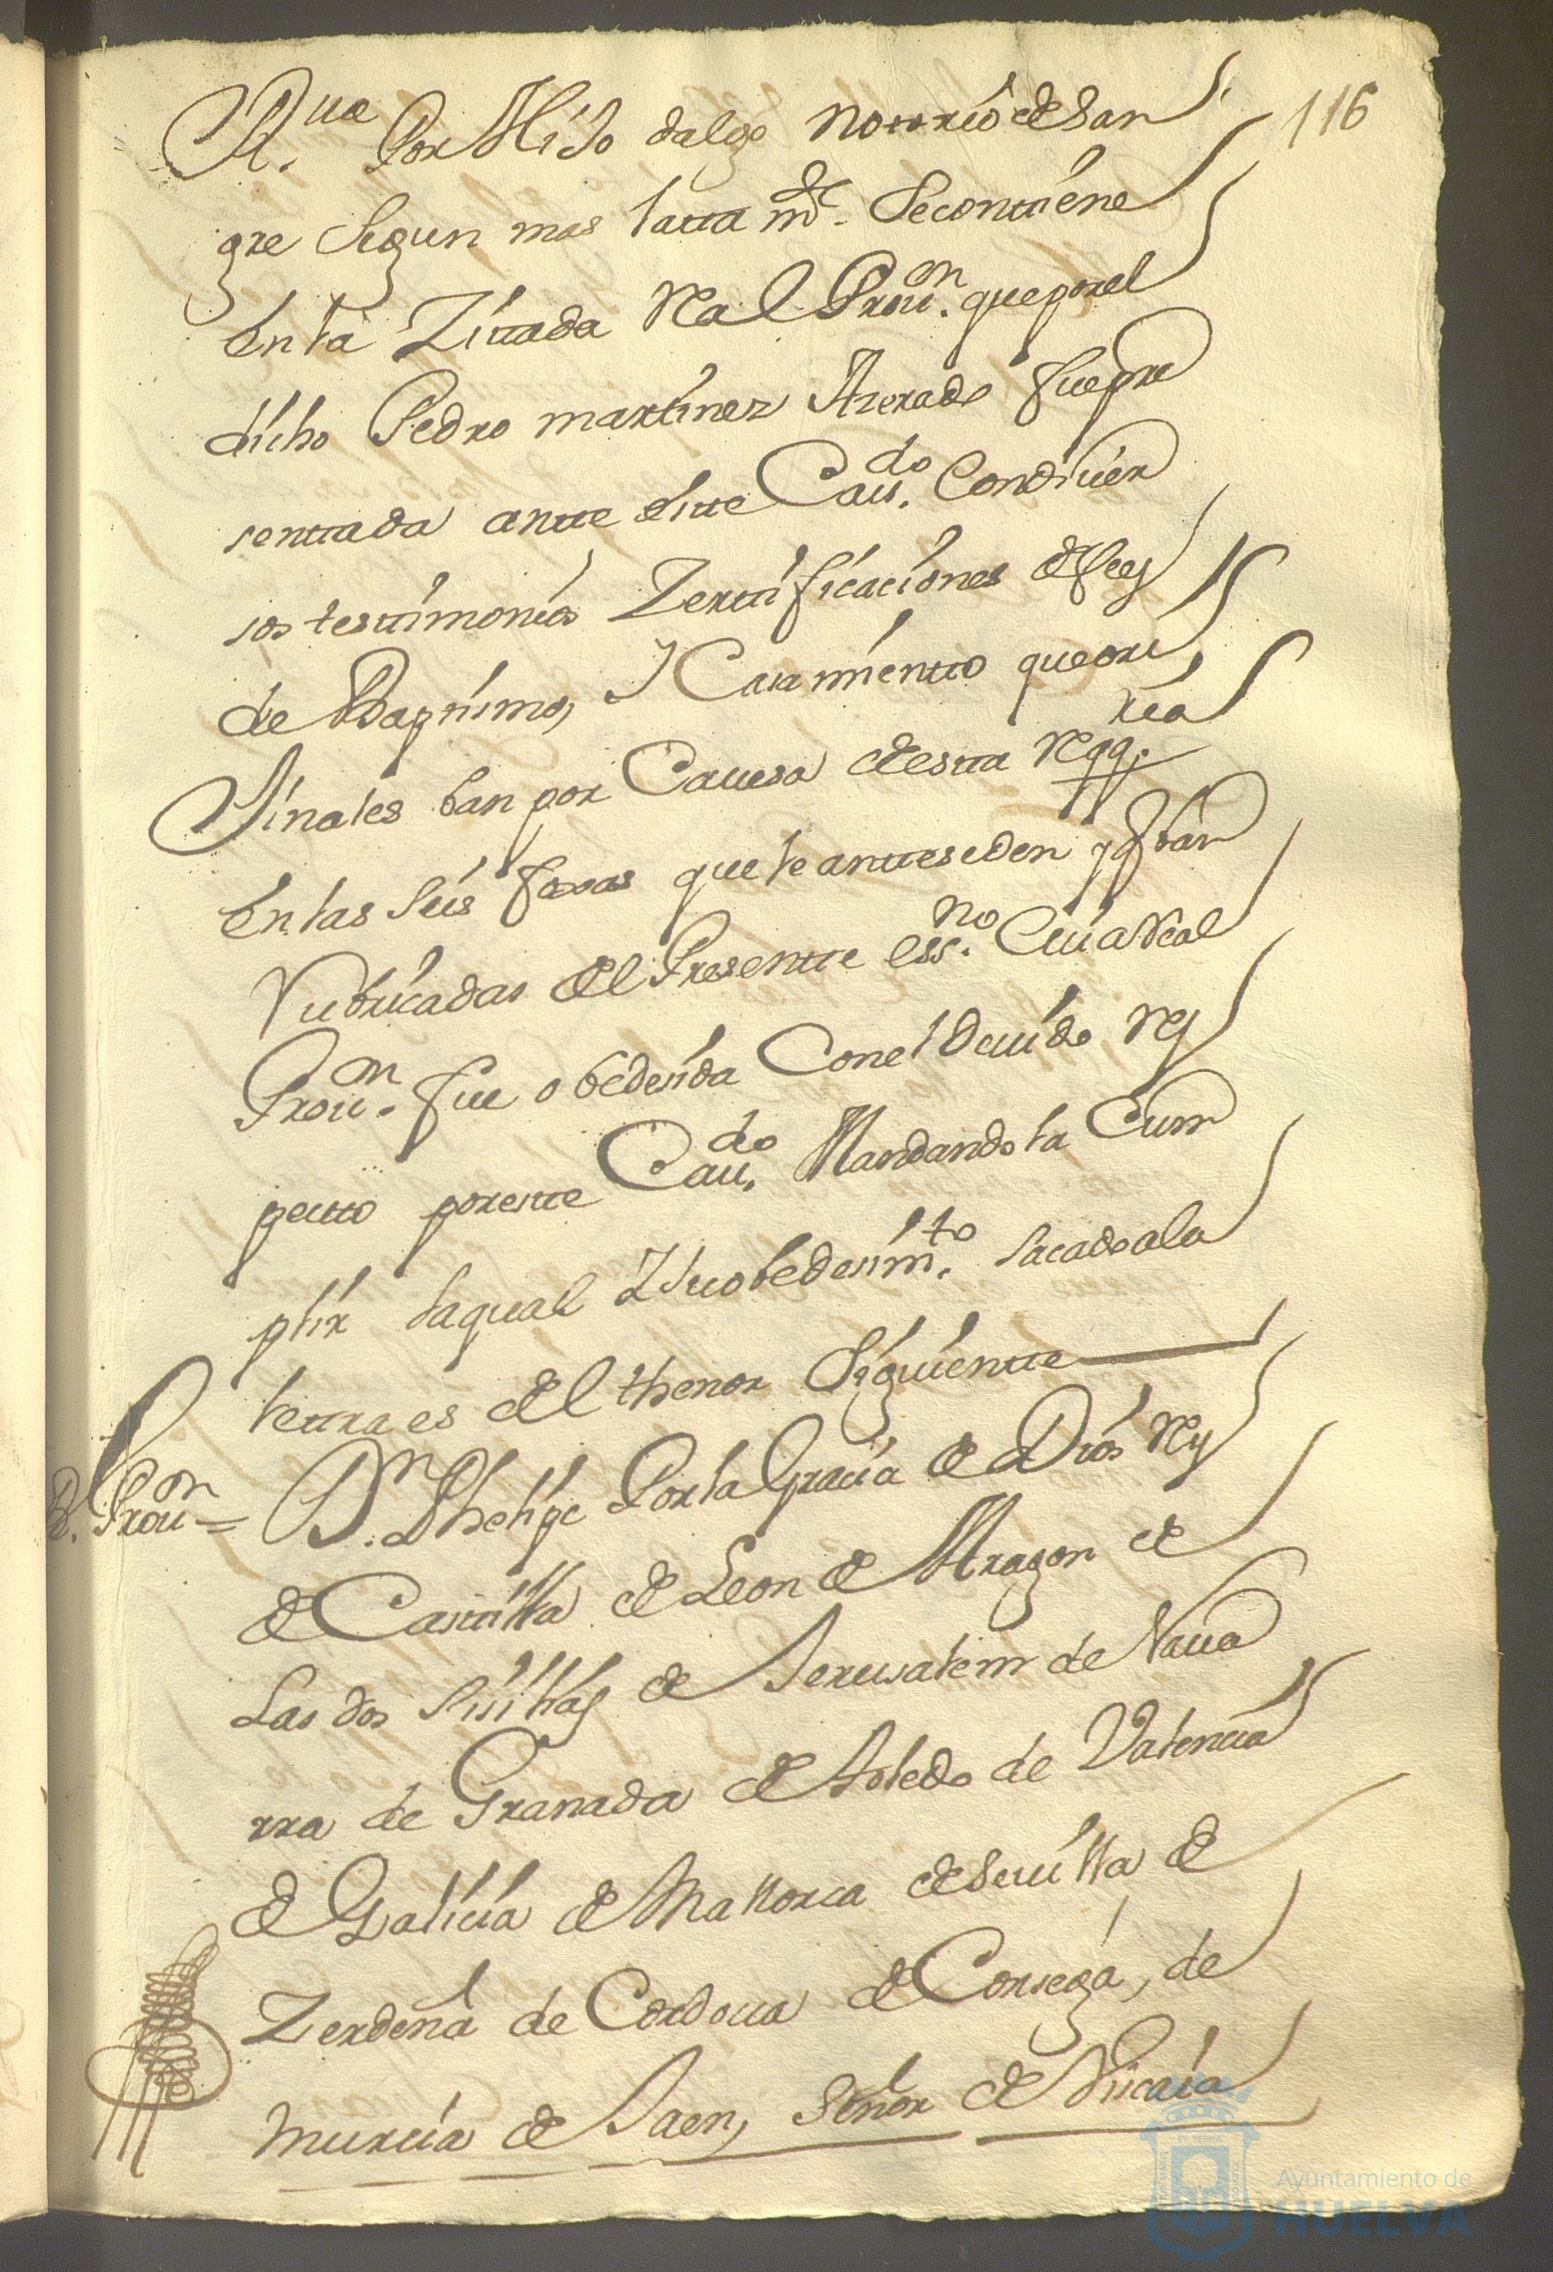 116
Rua. Por Hijo dalgo Notorio de San
gre Segun mas latta mte. Se contiene
en la Zittada Real Prouon. que por el
dicho Pedro martinez Azerado fue pre
senttada antte este Cauido. Con diuer
sos testtimonios Zerttificaciones de fees
de Baptismos, y Casamientto que ori
Jinales ban por Cauesa de estta Reqqria
en las seis foxas que le antteseden y ban
Rubricadas del Presentte essno. Cuia Real
Prouon. fue obedesida Con el deuido res
pectto por estte Cauido. Mandando la Cum
plir la qual y su obedesimto. sacado a la
lettra es del thenor Siguientte
R. Prouon = Dn. Phelipe Por la Gracia de Dios Rey
de Casttilla de Leon de Aragon de
Las dos Sisilias de Jerusalem de Naua
rra de Granada de toledo de Valencia
de Galicia de Mallorca de Seuilla de
Zerdeña de Cordoua de Corsega, de
Murcia de Jaen, Señor de Viscaia
Ayuntamiento de
HUELVA